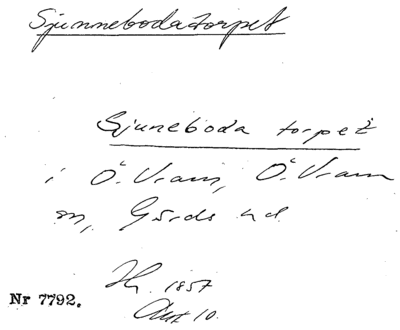 Sjunnebodatorpet
Sjuneboda torpet
i Ö. Vram, Ö. Vram
sn, Gärds hd.
Hy. 1857
Akt 10.
Nr 7792.